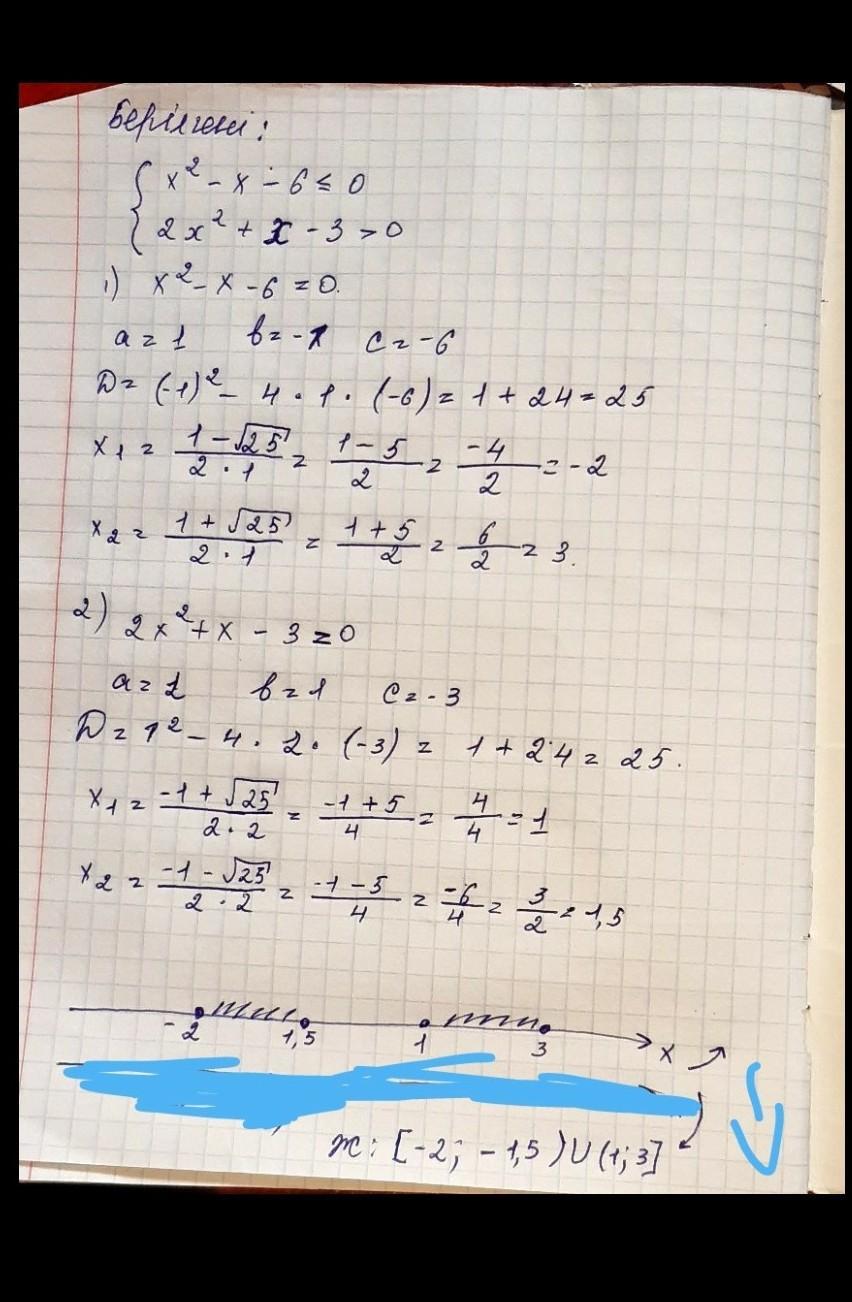 Берілгені:
x² - x - 6 ≤ 0
2x² + x - 3 > 0
1) x² - x - 6 = 0.
a = 1 b = -1 c = -6
D = (-1)² - 4 · 1 · (-6) = 1 + 24 = 25
x₁ = (1 - √25)/(2 · 1) = (1 - 5)/2 = -4/2 = -2
x₂ = (1 + √25)/(2 · 1) = (1 + 5)/2 = 6/2 = 3.
2) 2x² + x - 3 = 0
a = 2 b = 1 c = -3
D = 1² - 4 · 2 · (-3) = 1 + 24 = 25.
x₁ = (-1 + √25)/(2 · 2) = (-1 + 5)/4 = 4/4 = 1
x₂ = (-1 - √25)/(2 · 2) = (-1 - 5)/4 = -6/4 = 3/2 = 1,5
-2 1,5 1 3 x
Ж: [-2; -1,5) U (1; 3]